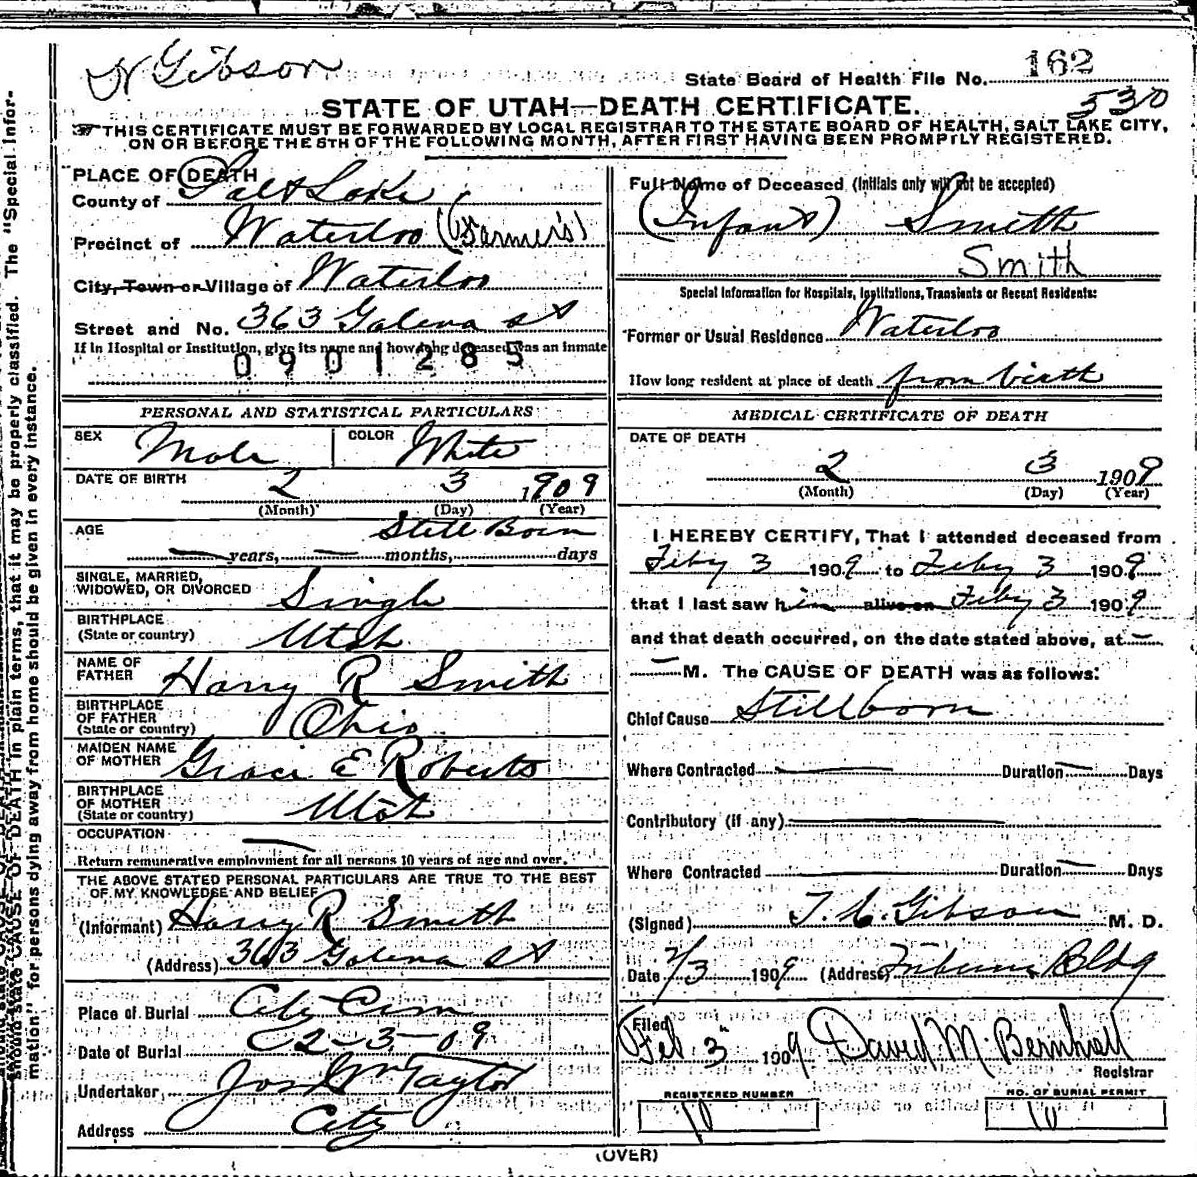 Dr Gibson
State Board of Health File No. 162
530
STATE OF UTAH—DEATH CERTIFICATE.
THIS CERTIFICATE MUST BE FORWARDED BY LOCAL REGISTRAR TO THE STATE BOARD OF HEALTH, SALT LAKE CITY,
ON OR BEFORE THE 5TH OF THE FOLLOWING MONTH, AFTER FIRST HAVING BEEN PROMPTLY REGISTERED.
PLACE OF DEATH
County of Salt Lake
Precinct of Waterloo (Farmer's)
City, Town or Village of Waterloo
Street and No. 363 Galena st
If in Hospital or Institution, give its name and how long deceased was an inmate
0901285
PERSONAL AND STATISTICAL PARTICULARS
SEX Male COLOR White
DATE OF BIRTH 2 3 1909
(Month) (Day) (Year)
AGE Still Born
years, months, days
SINGLE, MARRIED,
WIDOWED, OR DIVORCED Single
BIRTHPLACE
(State or country) Utah
NAME OF
FATHER Harry R Smith
BIRTHPLACE
OF FATHER
(State or country) Ohio
MAIDEN NAME
OF MOTHER Grace E Roberts
BIRTHPLACE
OF MOTHER
(State or country) Utah
OCCUPATION
Return remunerative employment for all persons 10 years of age and over.
THE ABOVE STATED PERSONAL PARTICULARS ARE TRUE TO THE BEST
OF MY KNOWLEDGE AND BELIEF
(Informant) Harry R Smith
(Address) 363 Galena st
Place of Burial City Cem
Date of Burial 2-3-09
Undertaker Jos Wm Taylor
Address City
Full Name of Deceased (Initials only will not be accepted)
(Infant) Smith
Smith
Special Information for Hospitals, Institutions, Transients or Recent Residents:
Former or Usual Residence Waterloo
How long resident at place of death from birth
MEDICAL CERTIFICATE OF DEATH
DATE OF DEATH
2 3 1909
(Month) (Day) (Year)
I HEREBY CERTIFY, That I attended deceased from
Feby 3 1909 to Feby 3 1909
that I last saw him alive on Feby 3 1909
and that death occurred, on the date stated above, at
M. The CAUSE OF DEATH was as follows:
Chief Cause Stillborn
Where Contracted Duration Days
Contributory (if any)
Where Contracted Duration Days
(Signed) Gibson M. D.
Date 2/3 1909 (Address) Tribune Bldg
Filed
Feb 3 1909 David M. Bernhall
Registrar
REGISTERED NUMBER
10
NO. OF BURIAL PERMIT
10
(OVER)
should state CAUSE OF DEATH in plain terms, that it may be properly classified. The "Special Infor-
mation" for persons dying away from home should be given in every instance.